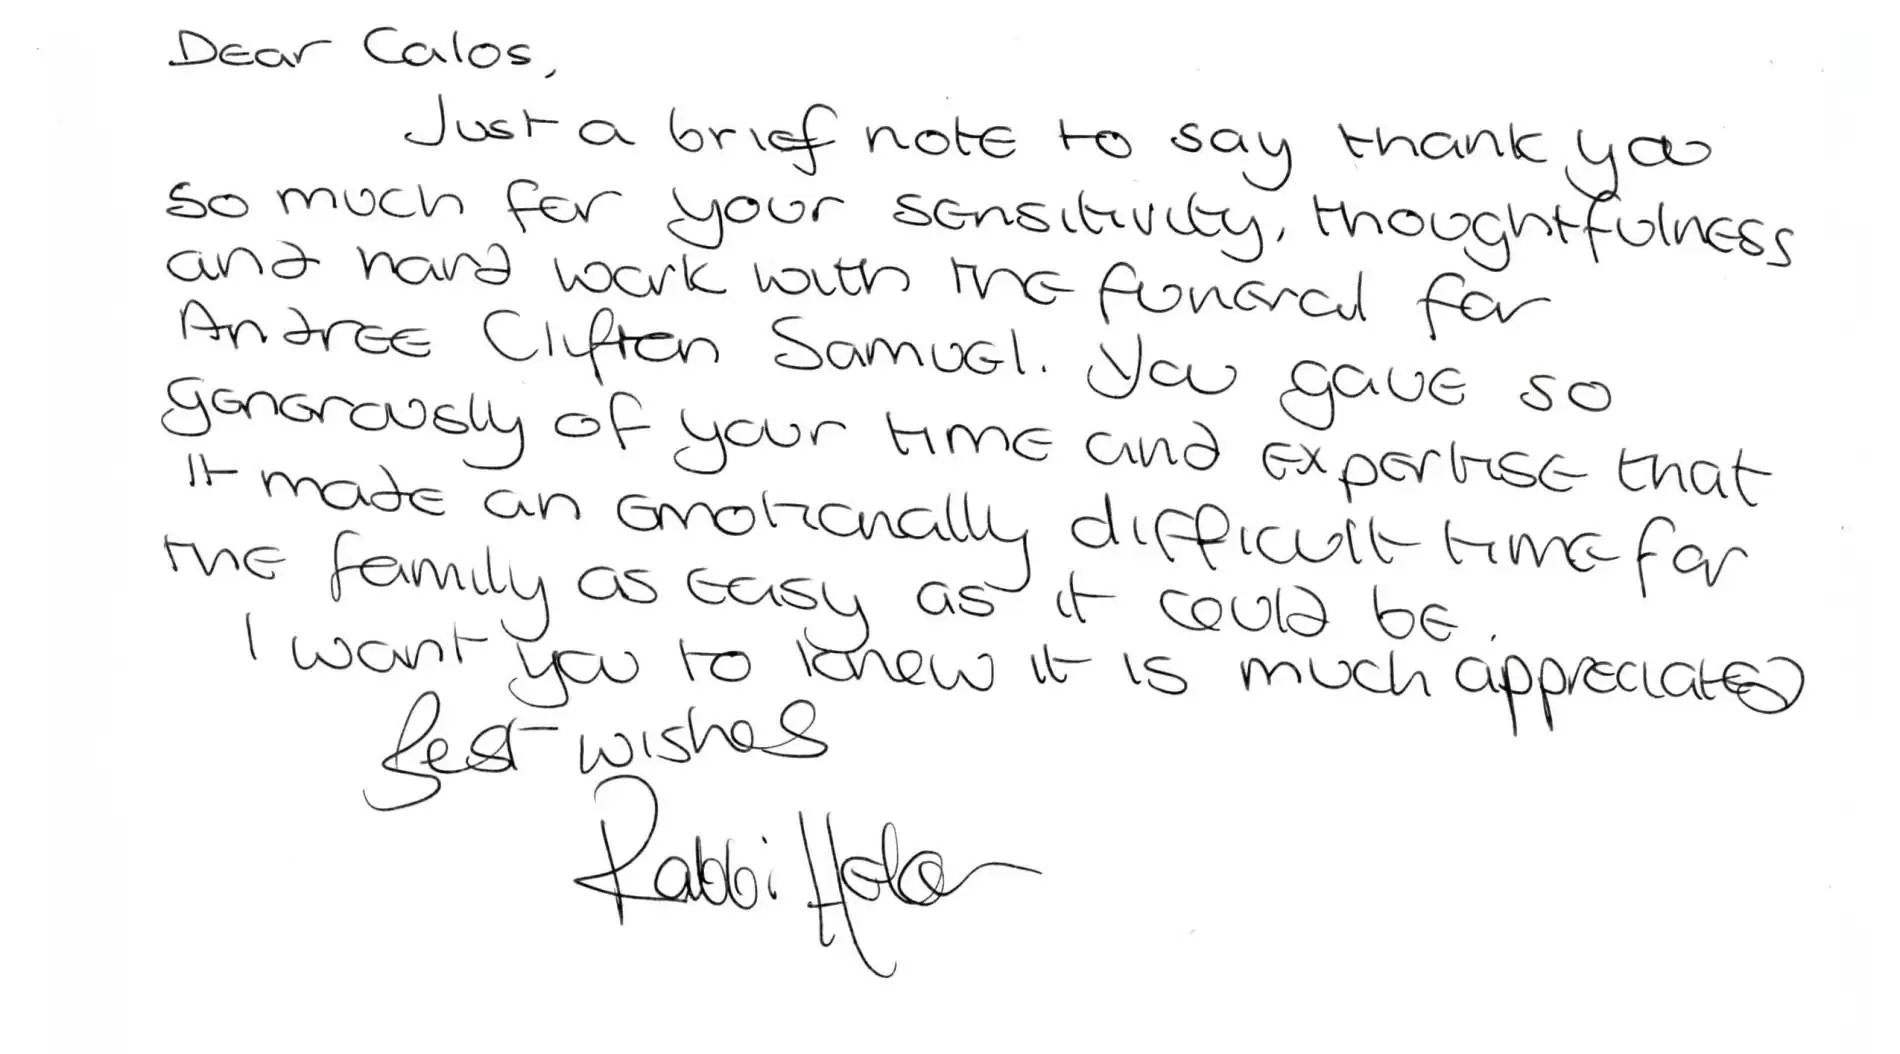 Dear Calos,
Just a brief note to say thank you
so much for your sensitivity, thoughtfulness
and hard work with the funeral for
Andree Clifton Samuel. You gave so
generously of your time and expertise that
it made an emotionally difficult time for
the family as easy as it could be.
I want you to know it is much appreciated
Best wishes
Rabbi